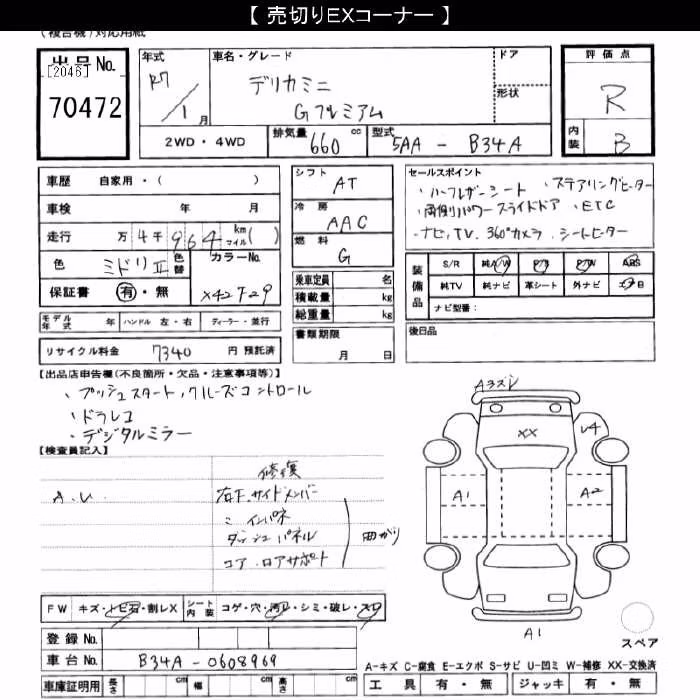 【 売切りEXコーナー 】
(複合機)対応用紙
出品No. [2046] 70472
年式 R7/1月
車名・グレード デリカミニ Gプレミアム
ドア
形状
評価点 R
内装 B
2WD・4WD
排気量 660 cc
型式 5AA - B34A
車歴 自家用・( )
車検 年 月
走行 万 4千964 km マイル( )
色 ミドリII 色替
カラーNo. X42 F29
保証書 有・無
シフト AT
冷房 AAC
燃料 G
乗車定員 名
積載量 kg
総重量 kg
セールスポイント
・ハーフレザーシート ・ステアリングヒーター
・両側パワースライドドア ・ETC
・ナビ,TV, 360°カメラ, シートヒーター
装備品 S/R 純A/W P/S P/W ABS
純TV 純ナビ 革シート 外ナビ エアB
ナビ型番:
モデル年式 年 ハンドル 左・右 ディーラー・並行
書類期限 月 日
後日品
リサイクル料金 7340 円 預託済
【出品店申告欄(不良箇所・欠品・注意事項等)】
・プッシュスタート,クルーズコントロール
・ドラレコ
・デジタルミラー
【検査員記入】
修復
A.U 右下.サイドメンバー
〃 インパネ
ダッシュパネル
コア.ロアサポート
曲がり
A3ズレ
XX
U4
A1
A2
A1
スペア
FW キズ・トビ石・割レX シート内装 コゲ・穴・汚レ・シミ・破レ・スレ
登録No.
車台No. B34A-0608969
車庫証明用 長さ cm 幅 cm 高さ cm
A-キズ C-腐食 E-エクボ S-サビ U-凹ミ W-補修 XX-交換済
工具 有・無 ジャッキ 有・無